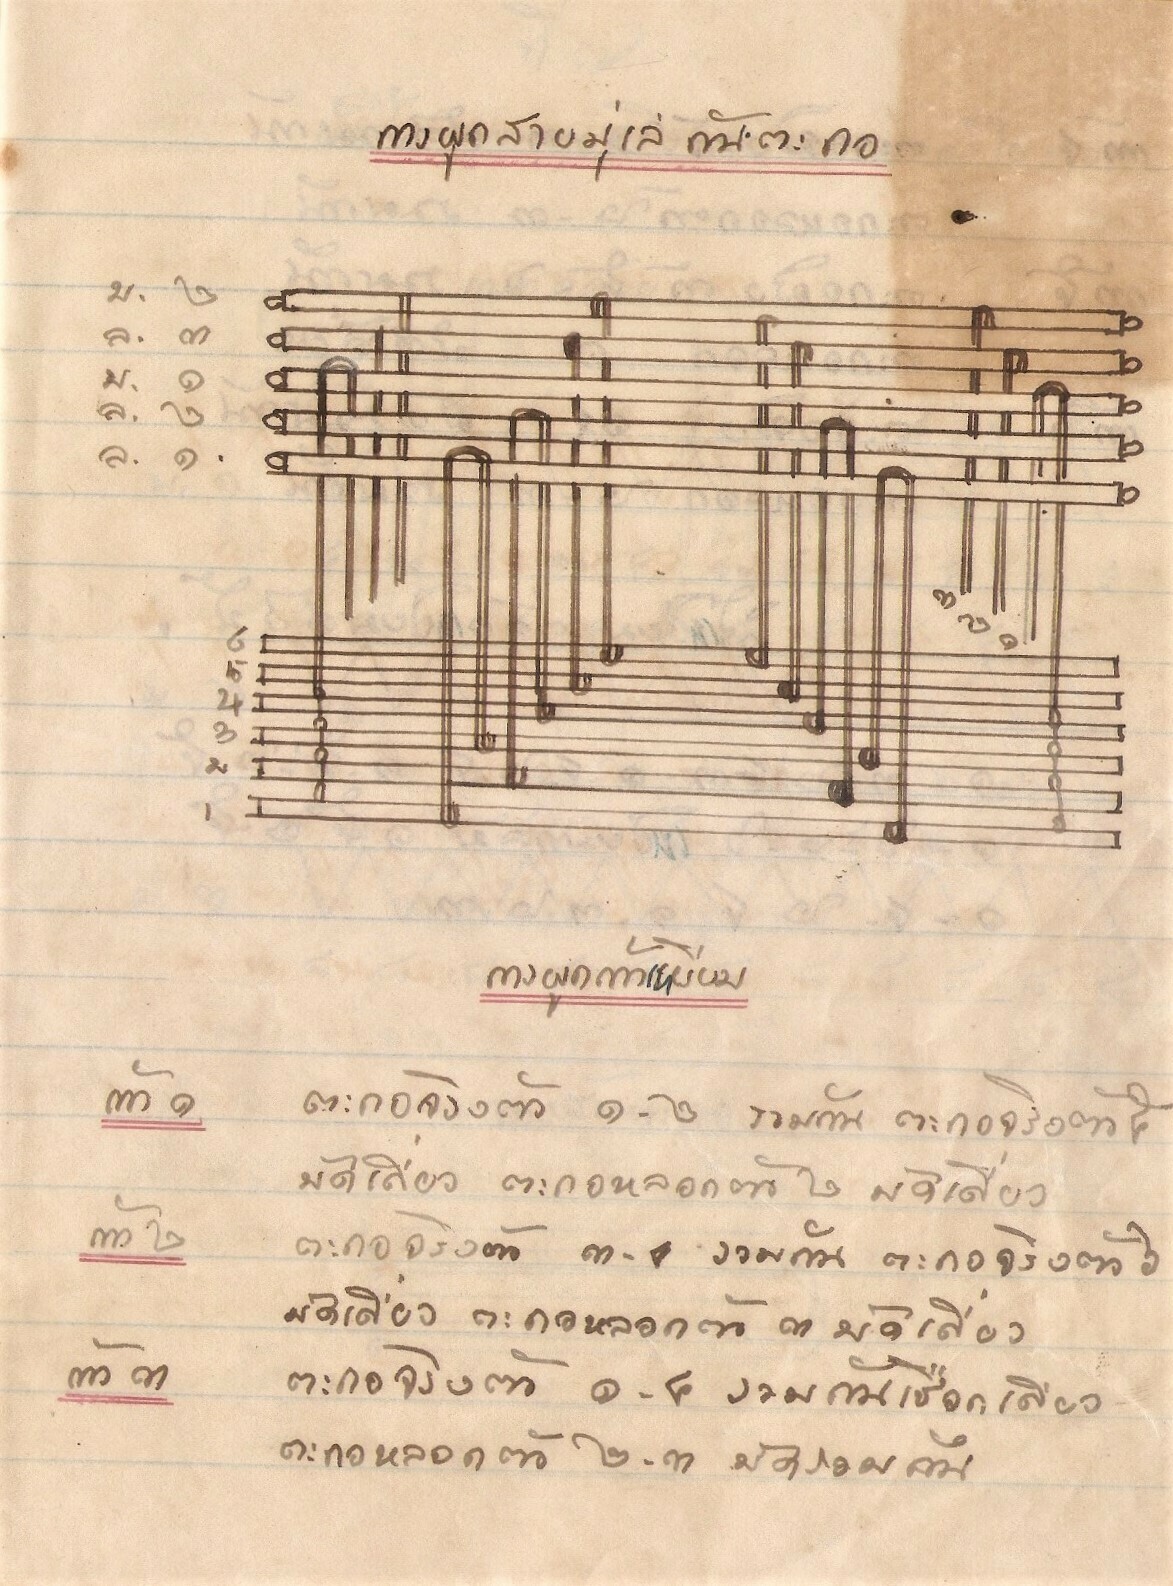 การผูกสายมู่เล่ กับตะกอ
ม. ๒
ล. ๓
ม. ๑
ล. ๒
ล. ๑.
๓
๒
๑
6
5
4
3
2
1
การผูกเท้าเหยียบ
เท้า ๑ ตะกอจริงตัว ๑-๒ รวมกัน ตะกอจริงตัว ๕
มัดเสี่ยว ตะกอหลอกตัว ๒ มัดเสี่ยว
เท้า ๒ ตะกอจริงตัว ๓-๔ รวมกัน ตะกอจริงตัว ๖
มัดเสี่ยว ตะกอหลอกตัว ๓ มัดเสี่ยว
เท้า ๓ ตะกอจริงตัว ๑-๔ รวมกันเชือกเสี่ยว
ตะกอหลอกตัว ๒-๓ มัดรวมกัน